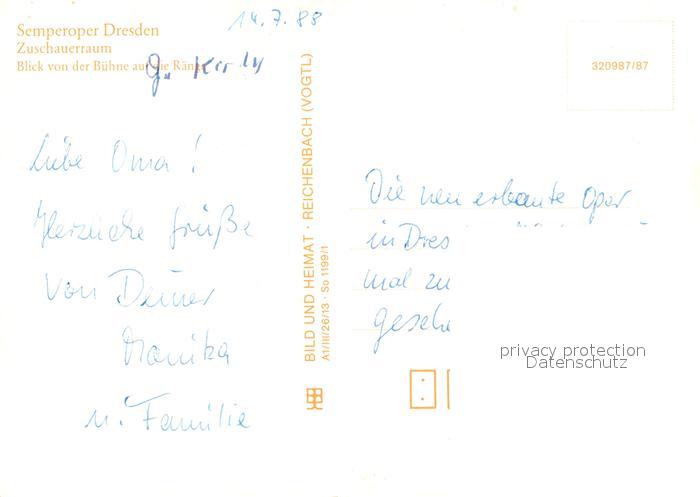 14.7.88
Semperoper Dresden
Zuschauerraum
Blick von der Bühne auf die Ränge
320987/87
Liebe Oma!
Herzliche Grüße
von Deiner
Monika
u. Familie
BILD UND HEIMAT · REICHENBACH (VOGTL)
A1/III/26/13 · So 1199/1
Die neu erbaute Oper
in Dres
mal zu
gesehe
privacy protection
Datenschutz